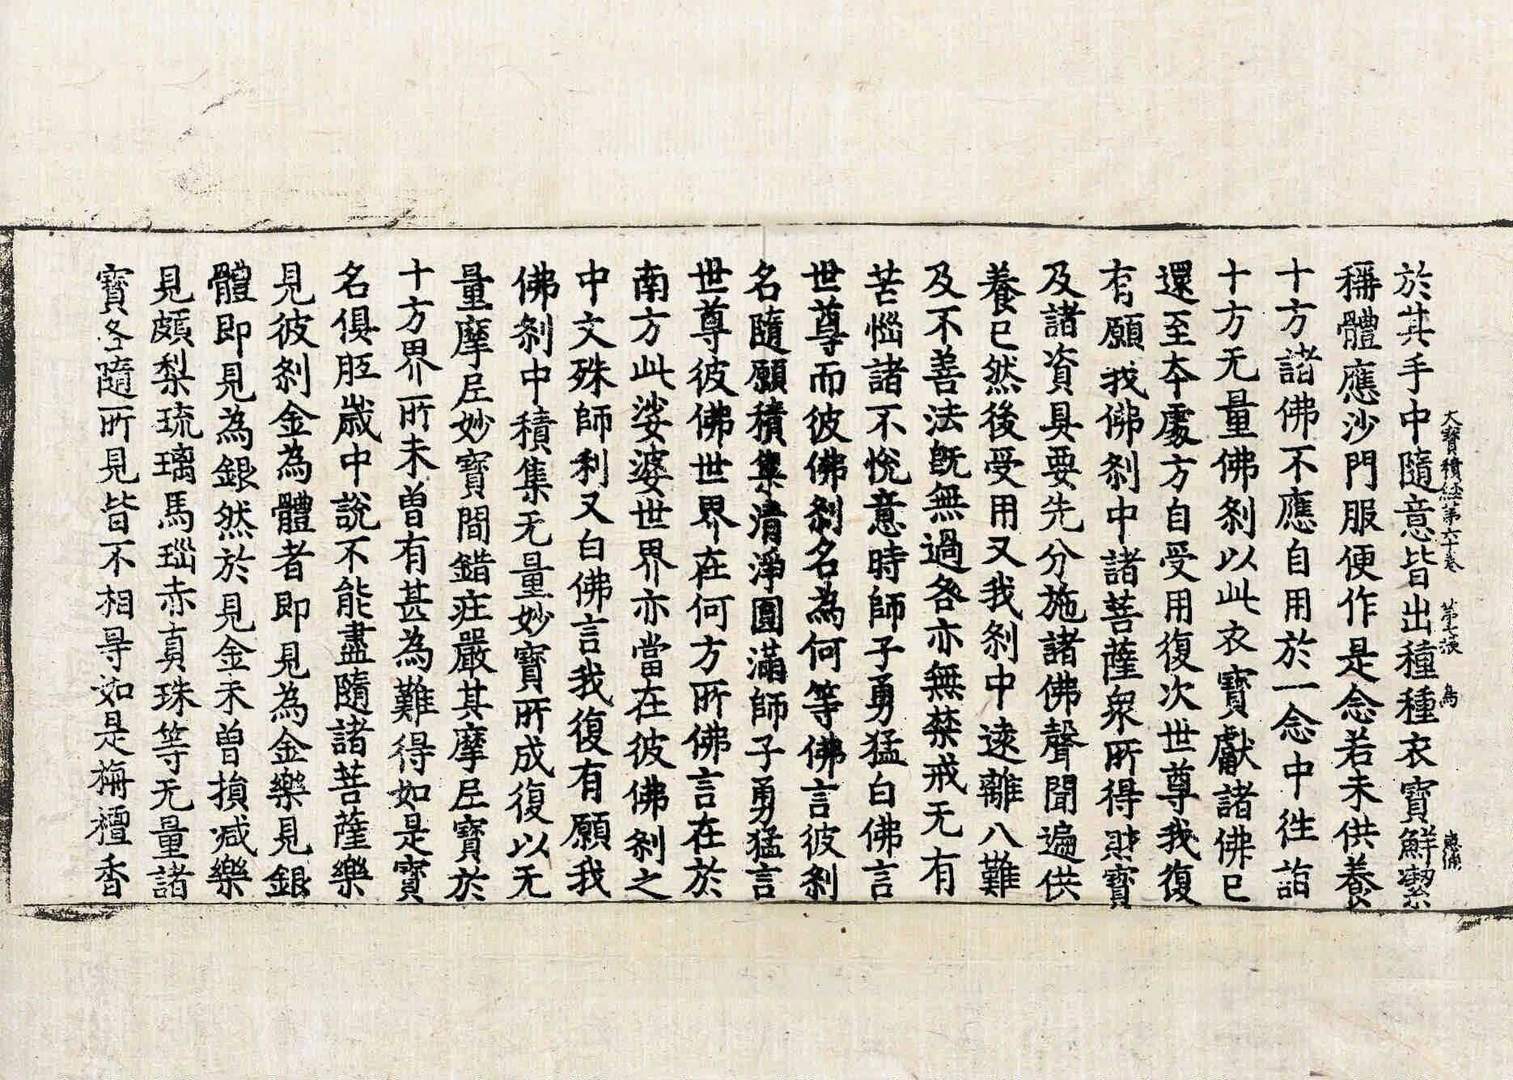 於其手中隨意皆出種種衣寶鮮潔
大寶積經第六十卷 第七張 鳥
稱體應沙門服便作是念若未供養
十方諸佛不應自用於一念中徃詣
十方无量佛刹以此衣寶獻諸佛已
還至本處方自受用復次世尊我復
有願我佛刹中諸菩薩衆所得財寶
及諸資具要先分施諸佛聲聞遍供
養已然後受用又我刹中遠離八難
及不善法旣無過咎亦無禁戒无有
苦惱諸不悅意時師子勇猛白佛言
世尊而彼佛刹名為何等佛言彼刹
名隨願積集清淨圓滿師子勇猛言
世尊彼佛世界在何方所佛言在於
南方此娑婆世界亦當在彼佛刹之
中文殊師利又白佛言我復有願我
佛刹中積集无量妙寶所成復以无
量摩尼妙寶間錯莊嚴其摩尼寶於
十方界所未曾有甚為難得如是寶
名俱胝歲中說不能盡隨諸菩薩樂
見彼刹金為體者即見為金樂見銀
體即見為銀然於見金未曾損减樂
見頗梨琉璃馬瑙赤真珠等无量諸
寶各隨所見皆不相㝵如是栴檀香